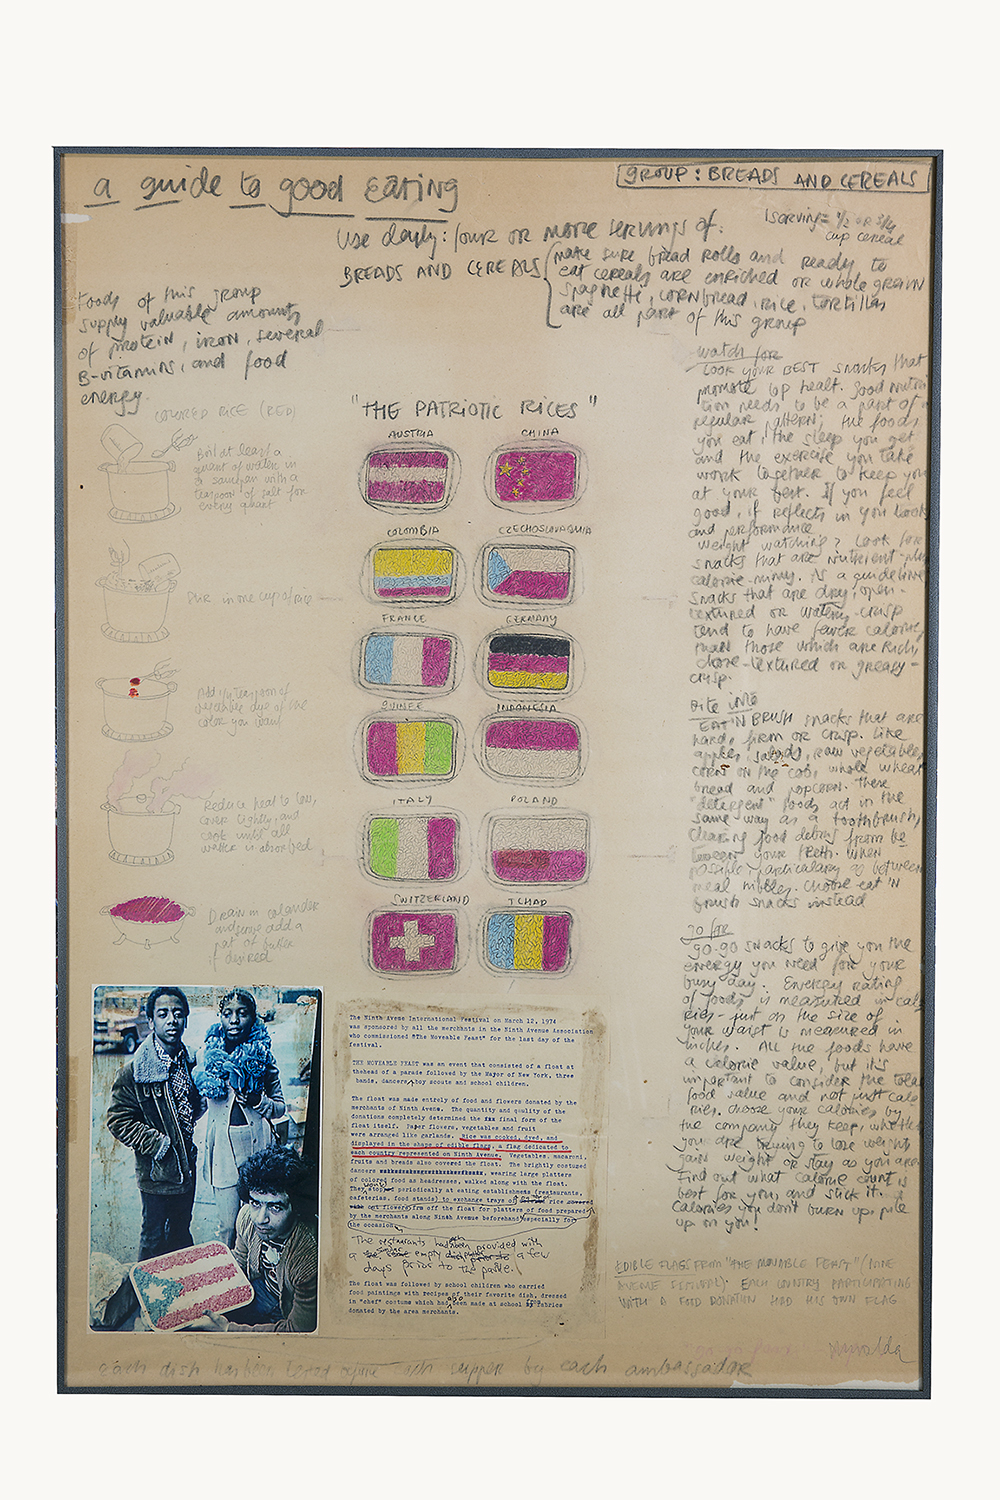 a guide to good eating
GROUP: BREADS AND CEREALS
1 serving = 1/2 or 3/4
cup cereal
use dayly: four or more servings of:
BREADS AND CEREALS
make sure bread rolls and ready to
eat cereals are enriched or whole grain
spaghetti, cornbread, rice, tortillas
are all part of this group
Foods of this group
supply valuable amounts
of protein, iron, several
B-vitamins, and food
energy.
COLORED RICE (RED)
Boil at least a
quart of water in
a saucepan with a
teaspoon of salt for
every quart
Stir in one cup of rice
teaspoon of
vegetable dye of the
color you want
Reduce heat to low,
cover tightly, and
cook until all
water is absorbed
Drain in colander
and serve add a
pat of butter
if desired
"THE PATRIOTIC RICES"
AUSTRIA
CHINA
COLOMBIA
CZECHOSLOVAQUIA
FRANCE
GERMANY
GUINEE
INDONESIA
ITALY
POLAND
SWITZERLAND
TCHAD
watch for
LOOK YOUR BEST snacks that
promote top healt. Good nutri
tion needs to be a part of a
regular pattern; the foods
you eat, the sleep you get
and the exercise you take
work together to keep you
at your best. If you feel
good, it reflects in you looks
and performance
weight watching? Look for
snacks that are nutrient-plus
calorie-minus. As a guideline
snacks that are dry, open-
textured or watery-crisp
tend to have fewer calories
than those which are rich,
close-textured or greasy-
crisp.
Bite into
EAT'N BRUSH snacks that are
hard, firm or crisp. Like
apples, salads, raw vegetables,
corn on the cob, whole wheat
bread and popcorn. These
"detergent" foods act in the
same way as a toothbrush,
clearing food debris from be
tween your teeth. When
possible, particulary as between
meal nibbles. Choose eat'n
brush snacks instead
go for
go-go snacks to give you the
energy you need for your
busy day. Energy rating
of foods is measured in calo
ries - just as the size of
your waist is measured in
inches. All the foods have
a calorie value, but it's
important to consider the total
food value and not just calo
ries. Choose your calories by
the company they keep, whether
you are trying to lose weight
gain weight or stay as you are.
Find out what calorie count is
best for you, and stick it.
Calories you don't burn up, pile
up on you!
The Ninth Avene International Festival on March 12, 1974
was sponsored by all the merchants in the Ninth Avenue Association
who commissioned "The Moveable Feast" for the last day of the
festival.
THE MOVEABLE FEAST was an event that consisted of a float at
thehead of a parade followed by the Mayor of New York, three
bands, dancers, boy scouts and school children.
The float was made entirely of food and flowers donated by the
merchants of Ninth Avene. The quantity and quality of the
donations completely determined the final form of the
float itself. Paper flowers, vegetables and fruit
were arranged like garlands. Rice was cooked, dyed, and
displayed in the shape of edible flags, a flag dedicated to
each country represented on Ninth Avenue. Vegetables, macaroni,
fruits and breads also covered the float. The brightly costumed
dancers wearing large platters
of colored food as headresses, walked along with the float.
They would stop periodically at eating establishments (restaurants,
cafeterias, food stands) to exchange trays of rice
from off the float for platters of food prepared
by the merchants along Ninth Avenue beforehand especially for
the occasion.
The restaurants had been provided with
a empty a few
days prior to the parade.
The float was followed by school children who carried
food paintings with recipes of their favorite dish, dressed
in "chef" costums which had been made at school fabrics
donated by the area merchants.
EDIBLE FLAGS FROM "THE MOVABLE FEAST" (NINE
AVENUE FESTIVAL). EACH COUNTRY PARTICIPATING
WITH A FOOD DONATION HAD HIS OWN FLAG
Miralda
each dish has been tested before each supper by each ambassador